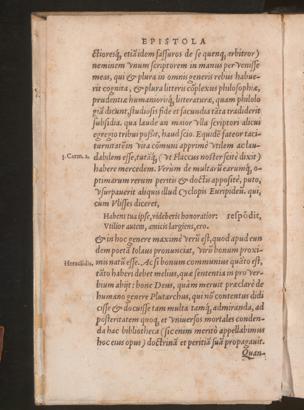 EPISTOLA
ctioresq́, etiã idem fassuros de se quenq, arbitror)
neminem vnum scriptorem in manus per venisse
meas, qui & plura in omnis generis rebus habue-
rit cognita, & plura litteris cõplexus philosophiæ,
prudentiæ humanioriq́, litteraturæ, quam philolo
giã dicunt, studiosis fide et facundia tãta tradiderit
subsidia. qua laude an maior vlla scriptori alicui
egregio tribui possit, haud scio. Equidẽ fateor taci-
turnitatẽ in vita cõmuni apprimè vtilem ac lau-
3. Carm. 2.
dabilem esse, tutãq́, (vt Flaccus noster scitè dixit)
habere mercedem. Verum de multarũ earumq́, o-
ptimarum rerum peritis & doctis appositè, puto,
vsurpauerit aliquis illud Cyclopis Euripideũ. qui,
cum Vlisses diceret,
Habens tua ipse, videberis honoratior: respõdit,
Vtilior autem, amicis largiens, ero.
& in hoc genere maximè verũ est, quod apud eun
dem poetã Iolaus pronunciat, virũ bonum proxi-
Heraclidis.
mis natũ esse. Ac si bonum communius quãto est,
tãto haberi debet melius, quæ sententia in prouer-
bium abijt: bone Deus, quàm meruit præclarè de
humano genere Plutarchus, qui nõ contentus didi
cisse & docuisse tam multa tamq́, admiranda, ad
posteritatem quoq, et vniuersos mortales conden-
da hac bibliotheca (sic enim meritò appellabimus
hoc eius opus) doctrinã et peritiã suã propagauit.
Quan-